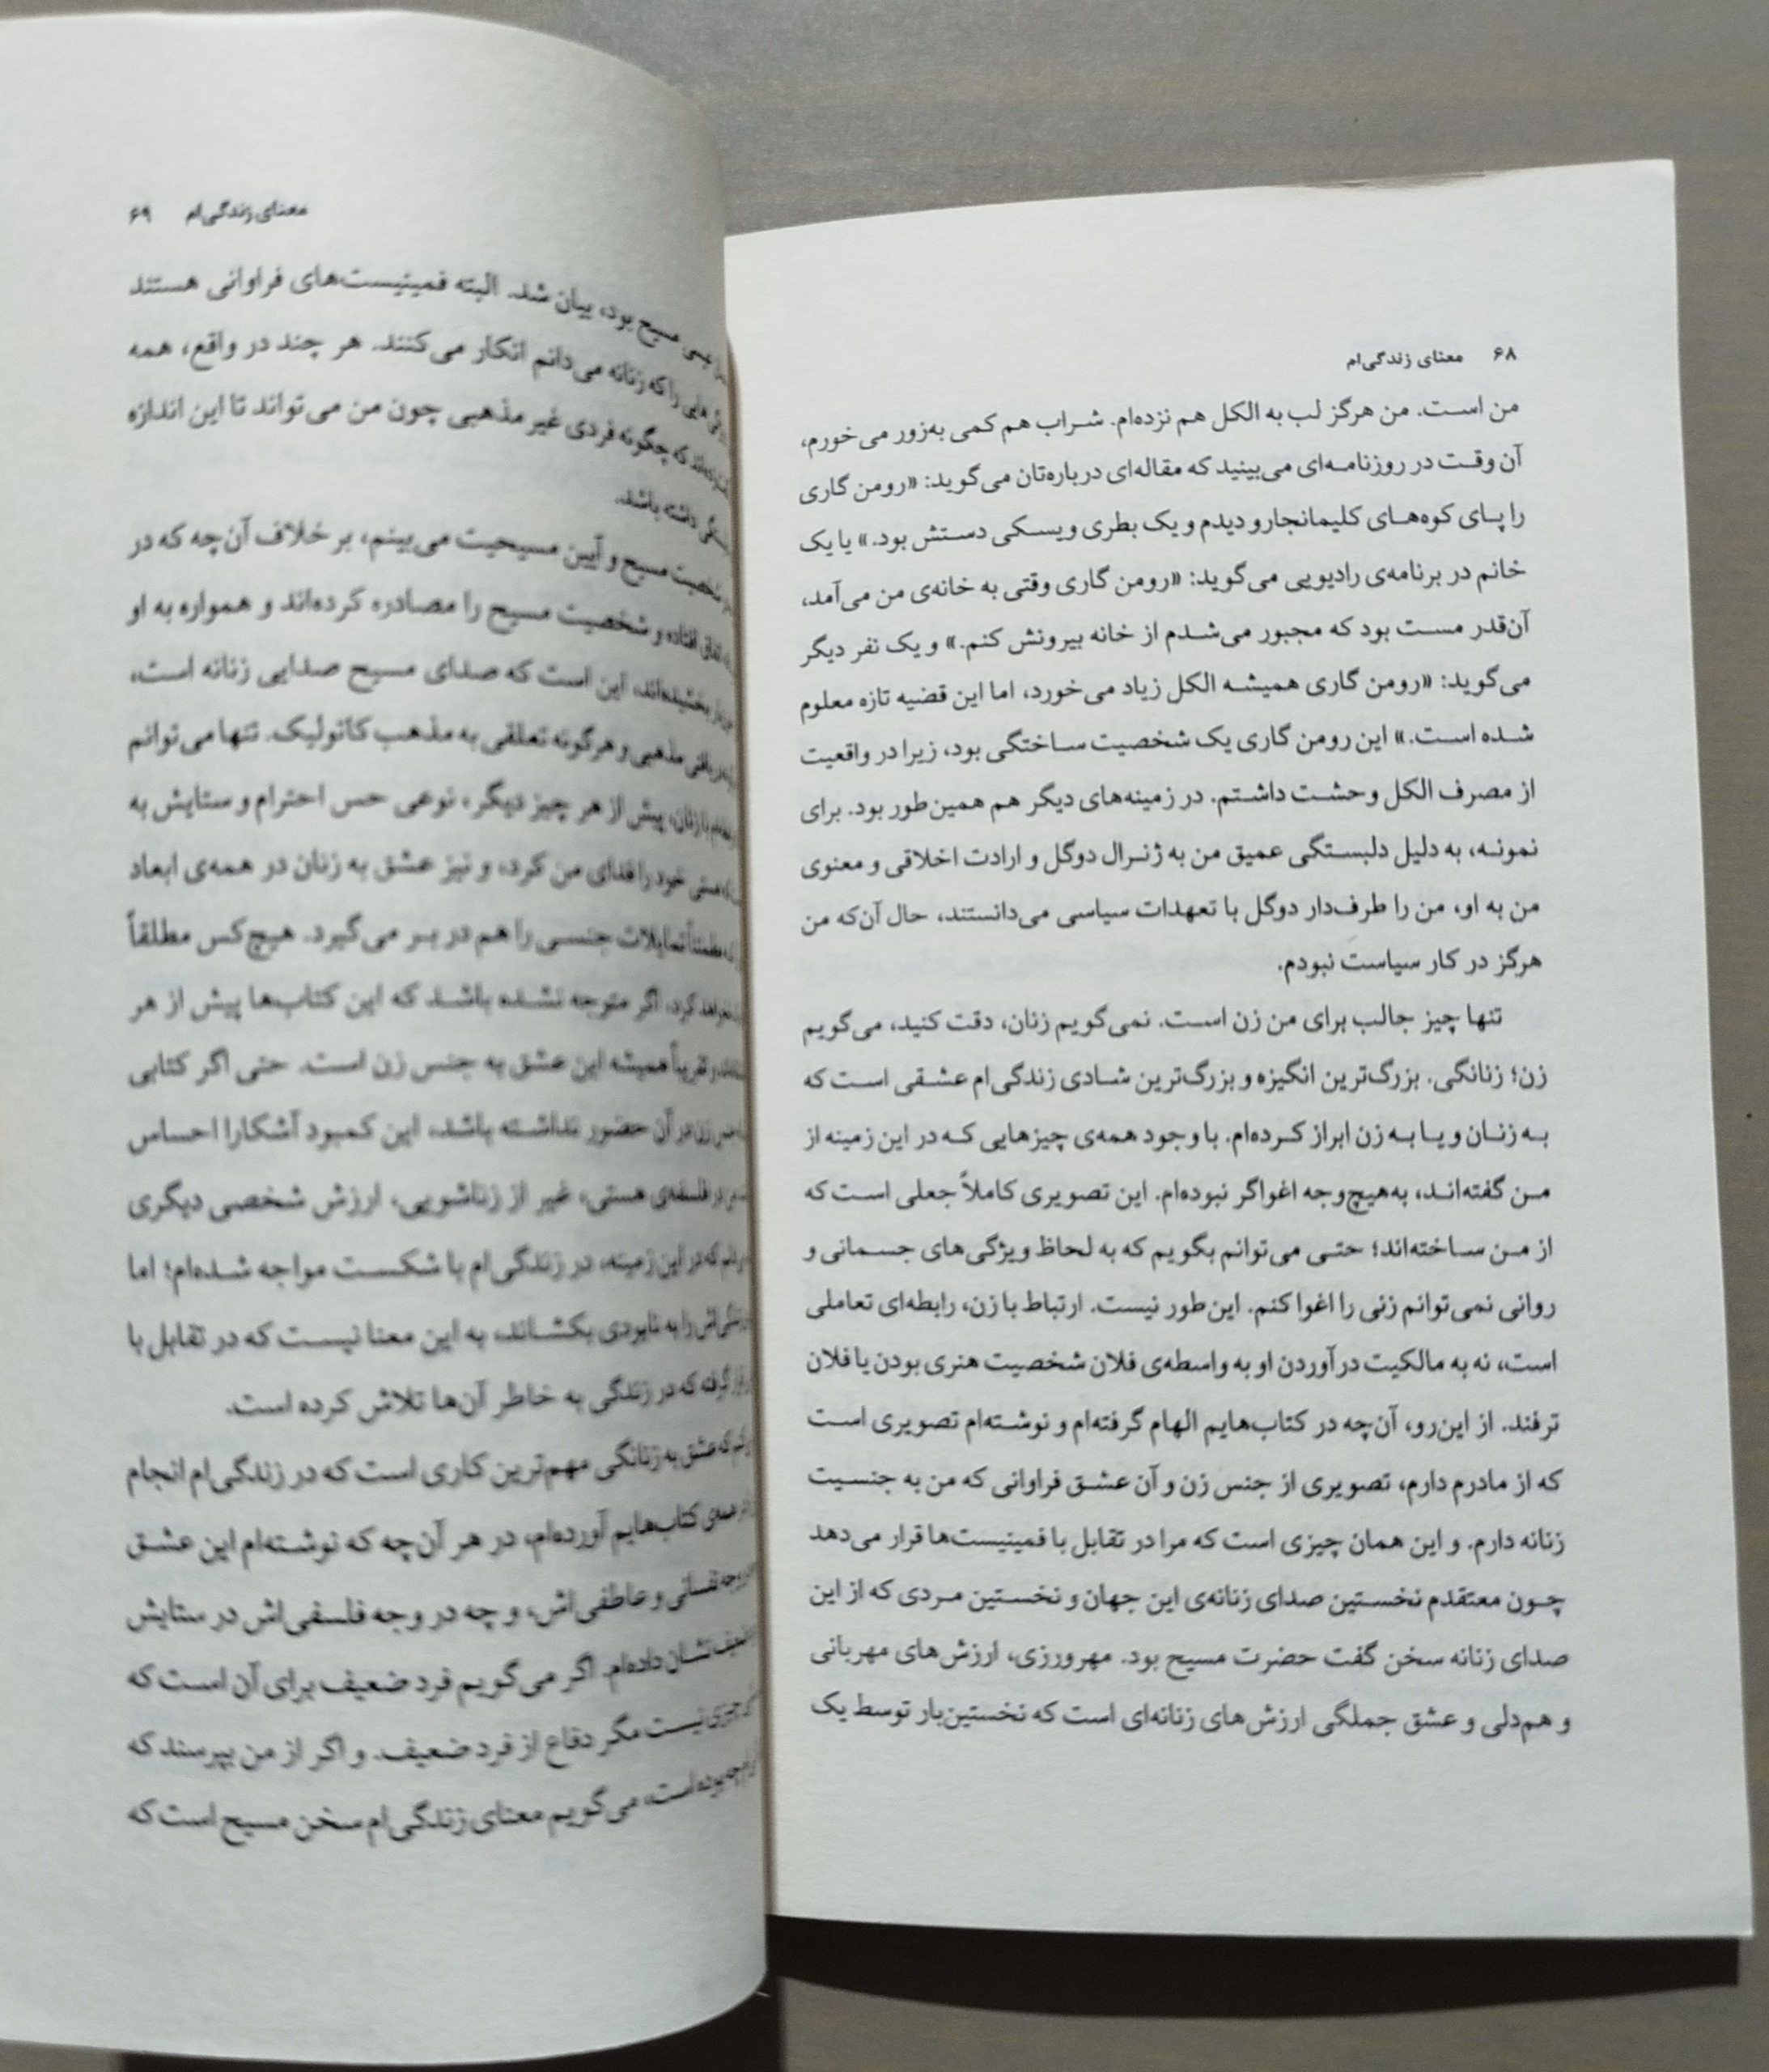 ۶۸ معنای زندگی‌ام
من است. من هرگز لب به الکل هم نزده‌ام. شراب هم کمی به‌زور می‌خورم،
آن وقت در روزنامه‌ای می‌بینید که مقاله‌ای درباره‌تان می‌گوید: «رومن گاری
را پای کوه‌های کلیمانجارو دیدم و یک بطری ویسکی دستش بود.» یا یک
خانم در برنامه‌ی رادیویی می‌گوید: «رومن گاری وقتی به خانه‌ی من می‌آمد،
آن‌قدر مست بود که مجبور می‌شدم از خانه بیرونش کنم.» و یک نفر دیگر
می‌گوید: «رومن گاری همیشه الکل زیاد می‌خورد، اما این قضیه تازه معلوم
شده است.» این رومن گاری یک شخصیت ساختگی بود، زیرا در واقعیت
از مصرف الکل وحشت داشتم. در زمینه‌های دیگر هم همین‌طور بود. برای
نمونه، به دلیل دلبستگی عمیق من به ژنرال دوگل و ارادت اخلاقی و معنوی
من به او، من را طرف‌دار دوگل با تعهدات سیاسی می‌دانستند، حال آن‌که من
هرگز در کار سیاست نبودم.
تنها چیز جالب برای من زن است. نمی‌گویم زنان، دقت کنید، می‌گویم
زن؛ زنانگی. بزرگ‌ترین انگیزه و بزرگ‌ترین شادی زندگی‌ام عشقی است که
به زنان و یا به زن ابراز کرده‌ام. با وجود همه‌ی چیزهایی که در این زمینه از
من گفته‌اند، به‌هیچ‌وجه اغواگر نبوده‌ام. این تصویری کاملاً جعلی است که
از من ساخته‌اند؛ حتی می‌توانم بگویم که به لحاظ ویژگی‌های جسمانی و
روانی نمی‌توانم زنی را اغوا کنم. این‌طور نیست. ارتباط با زن، رابطه‌ای تعاملی
است، نه به مالکیت درآوردن او به واسطه‌ی فلان شخصیت هنری بودن یا فلان
ترفند. از این‌رو، آن‌چه در کتاب‌هایم الهام گرفته‌ام و نوشته‌ام تصویری است
که از مادرم دارم، تصویری از جنس زن و آن عشق فراوانی که من به جنسیت
زنانه دارم. و این همان چیزی است که مرا در تقابل با فمینیست‌ها قرار می‌دهد
چون معتقدم نخستین صدای زنانه‌ی این جهان و نخستین مردی که از این
صدای زنانه سخن گفت حضرت مسیح بود. مهرورزی، ارزش‌های مهربانی
و هم‌دلی و عشق جملگی ارزش‌های زنانه‌ای است که نخستین‌بار توسط یک
معنای زندگی‌ام ۶۹
مسیح بود، بیان شد. البته فمینیست‌های فراوانی هستند
را که زنانه می‌دانم انکار می‌کنند. هر چند در واقع، همه
که چگونه فردی غیر مذهبی چون من می‌تواند تا این اندازه
داشته باشد.
شخصیت مسیح و آیین مسیحیت می‌بینم، بر خلاف آن‌چه که در
اتفاق افتاده و شخصیت مسیح را مصادره کرده‌اند و همواره به او
بخشیده‌اند، این است که صدای مسیح صدایی زنانه است،
مذهبی و هرگونه تعلقی به مذهب کاتولیک. تنها می‌توانم
با زنان، پیش از هر چیز دیگر، نوعی حس احترام و ستایش به
هستی خود را فدای من کرد، و نیز عشق به زنان در همه‌ی ابعاد
تمایلات جنسی را هم در بر می‌گیرد. هیچ‌کس مطلقاً
نخواهد کرد، اگر متوجه نشده باشد که این کتاب‌ها پیش از هر
تقریباً همیشه این عشق به جنس زن است. حتی اگر کتابی
زن در آن حضور نداشته باشد، این کمبود آشکارا احساس
در فلسفه‌ی هستی، غیر از زناشویی، ارزش شخصی دیگری
که در این زمینه، در زندگی‌ام با شکست مواجه شده‌ام؛ اما
را به نابودی بکشاند، به این معنا نیست که در تقابل با
گرفته که در زندگی به خاطر آن‌ها تلاش کرده است.
که عشق به زنانگی مهم‌ترین کاری است که در زندگی‌ام انجام
همه‌ی کتاب‌هایم آورده‌ام، در هر آن‌چه که نوشته‌ام این عشق
نفسانی و عاطفی‌اش، و چه در وجه فلسفی‌اش در ستایش
ضعیف نشان داده‌ام. اگر می‌گویم فرد ضعیف برای آن است که
چیزی نیست مگر دفاع از فرد ضعیف. و اگر از من بپرسند که
چه بوده است، می‌گویم معنای زندگی‌ام سخن مسیح است که